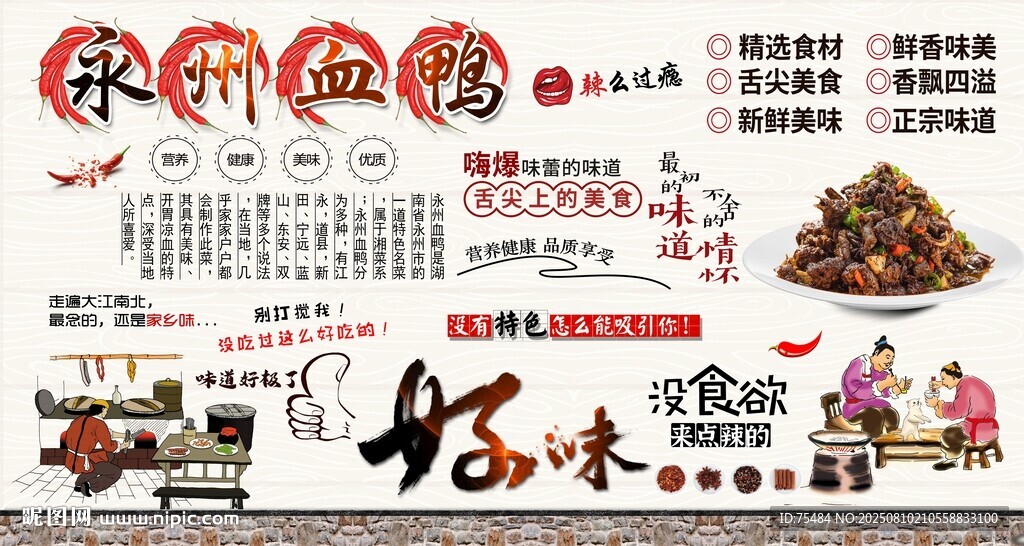 永州血鸭
辣么过瘾
◎ 精选食材
◎ 鲜香味美
◎ 舌尖美食
◎ 香飘四溢
◎ 新鲜美味
◎ 正宗味道
营养
健康
美味
优质
永州血鸭是湖
南省永州市的
一道特色名菜
，属于湘菜系
；永州血鸭分
为多种，有江
永，道县，新
田、宁远、蓝
山、东安、双
牌等多个说法
，在当地，几
乎家家户户都
会制作此菜，
其具有美味、
开胃凉血的特
点，深受当地
人所喜爱。
嗨爆味蕾的味道
舌尖上的美食
营养健康 品质享受
最初的味道
不舍的情怀
走遍大江南北，
最念的，还是家乡味...
别打搅我！
没吃过这么好吃的！
没有特色怎么能吸引你！
味道好极了
好味
没食欲
来点辣的
昵图网 www.nipic.com
ID:75484 NO:20250810210558833100